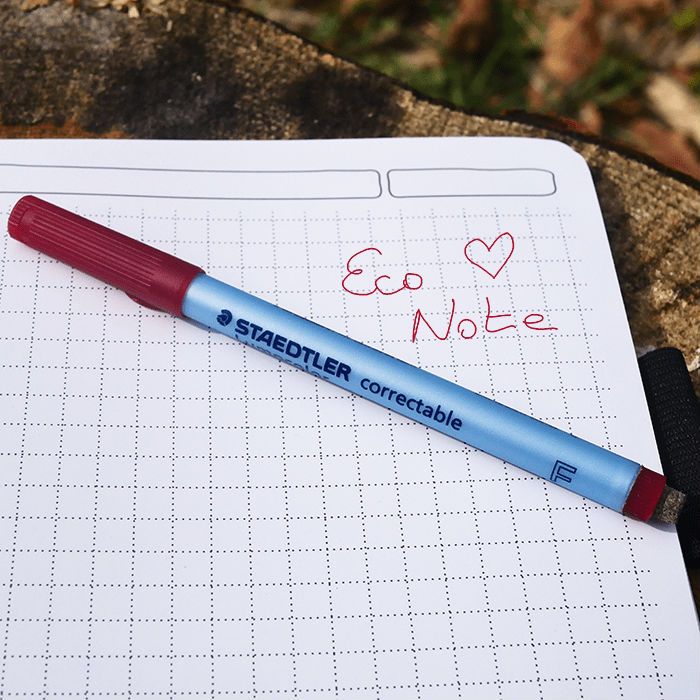 Eco
Note
STAEDTLER
Lumocolor
correctable
F